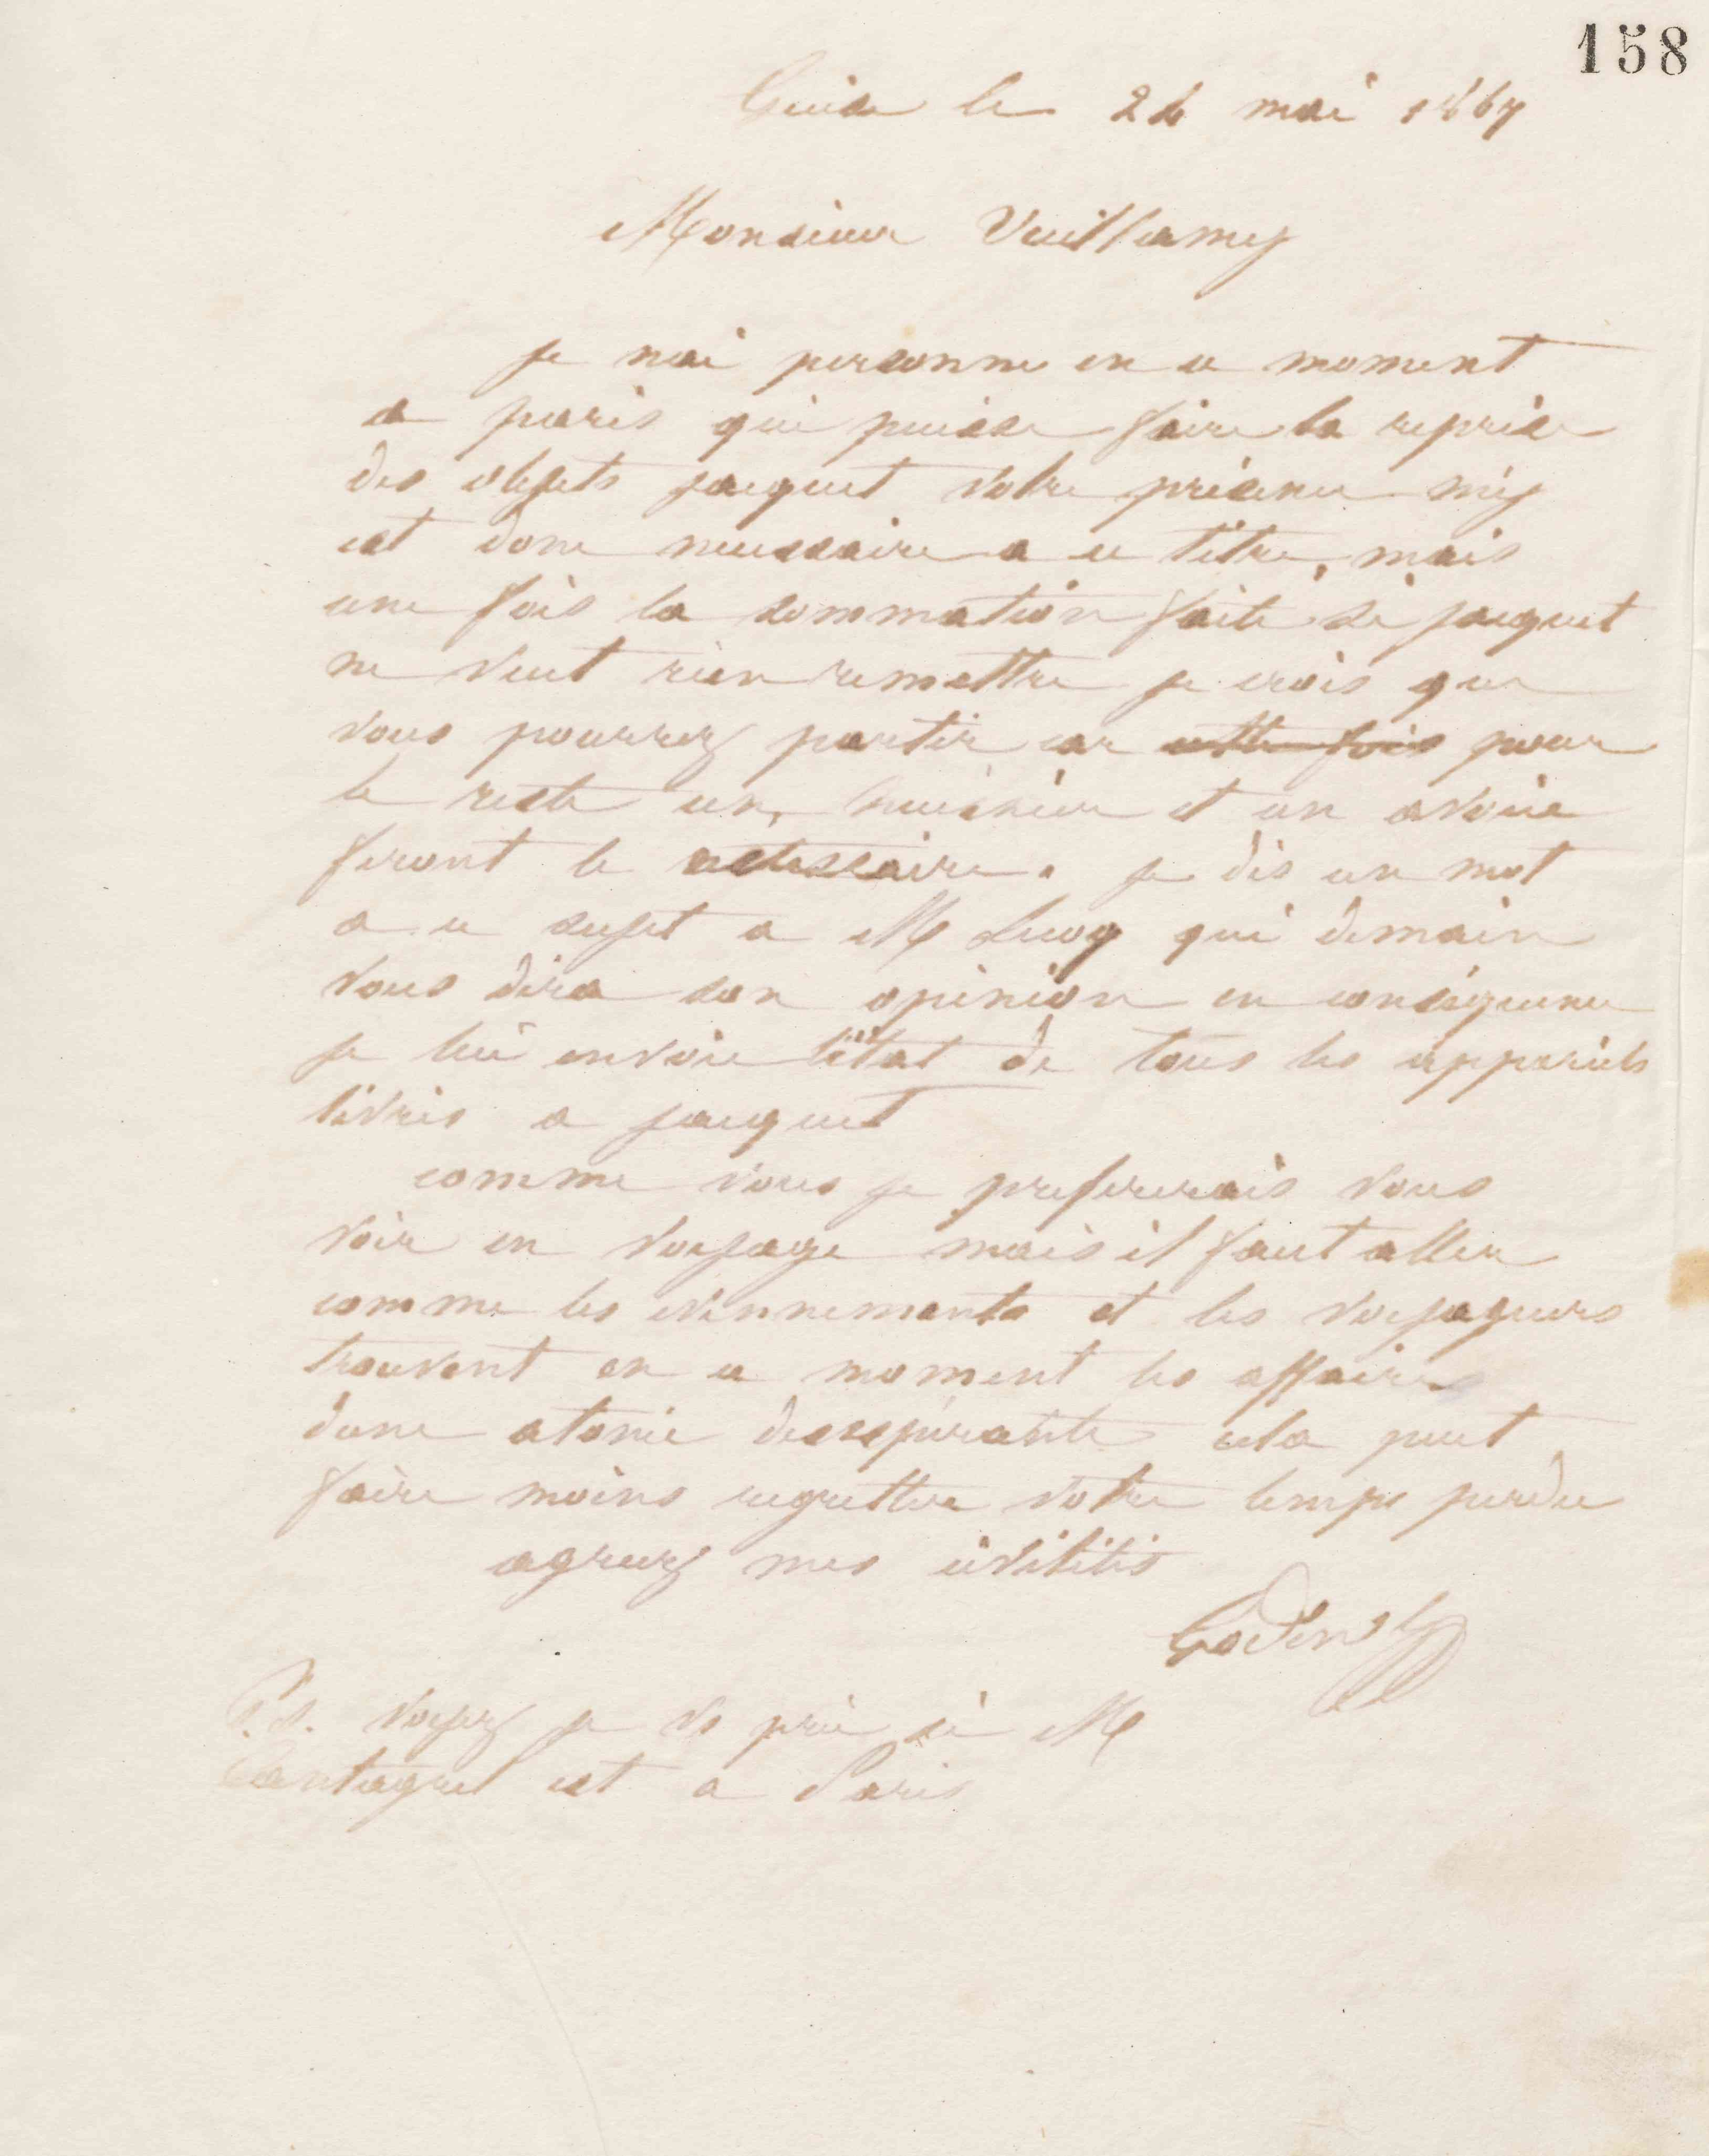 158
Guise le 24 mai 1867
Monsieur Vuillamy
je nai personne en ce moment
a paris qui puisse faire la reprise
des objets jacquet votre présence my
est donc necessaire a ce titre, mais
une fois la sommation faite si jacquet
ne veut rien remettre je crois que
vous pourrez partir car cette fois pour
le reste un huissier et un avoué
feront le necessaire. je dis un mot
a ce sujet a M Lecoq qui demain
vous dira son opinion en conséquence
je lui envoie létat de tous les appareils
livrés a jacquet
comme vous je prefererais vous
voir en voyage mais il faut aller
comme les evennements et les voyageurs
trouvent en ce moment les affaires
dune atonie desesperante cela peut
faire moins regretter votre temps perdu
agreez mes civilités
Godin
P.S. voyez je vs prie si M
Cantagrel est a Paris